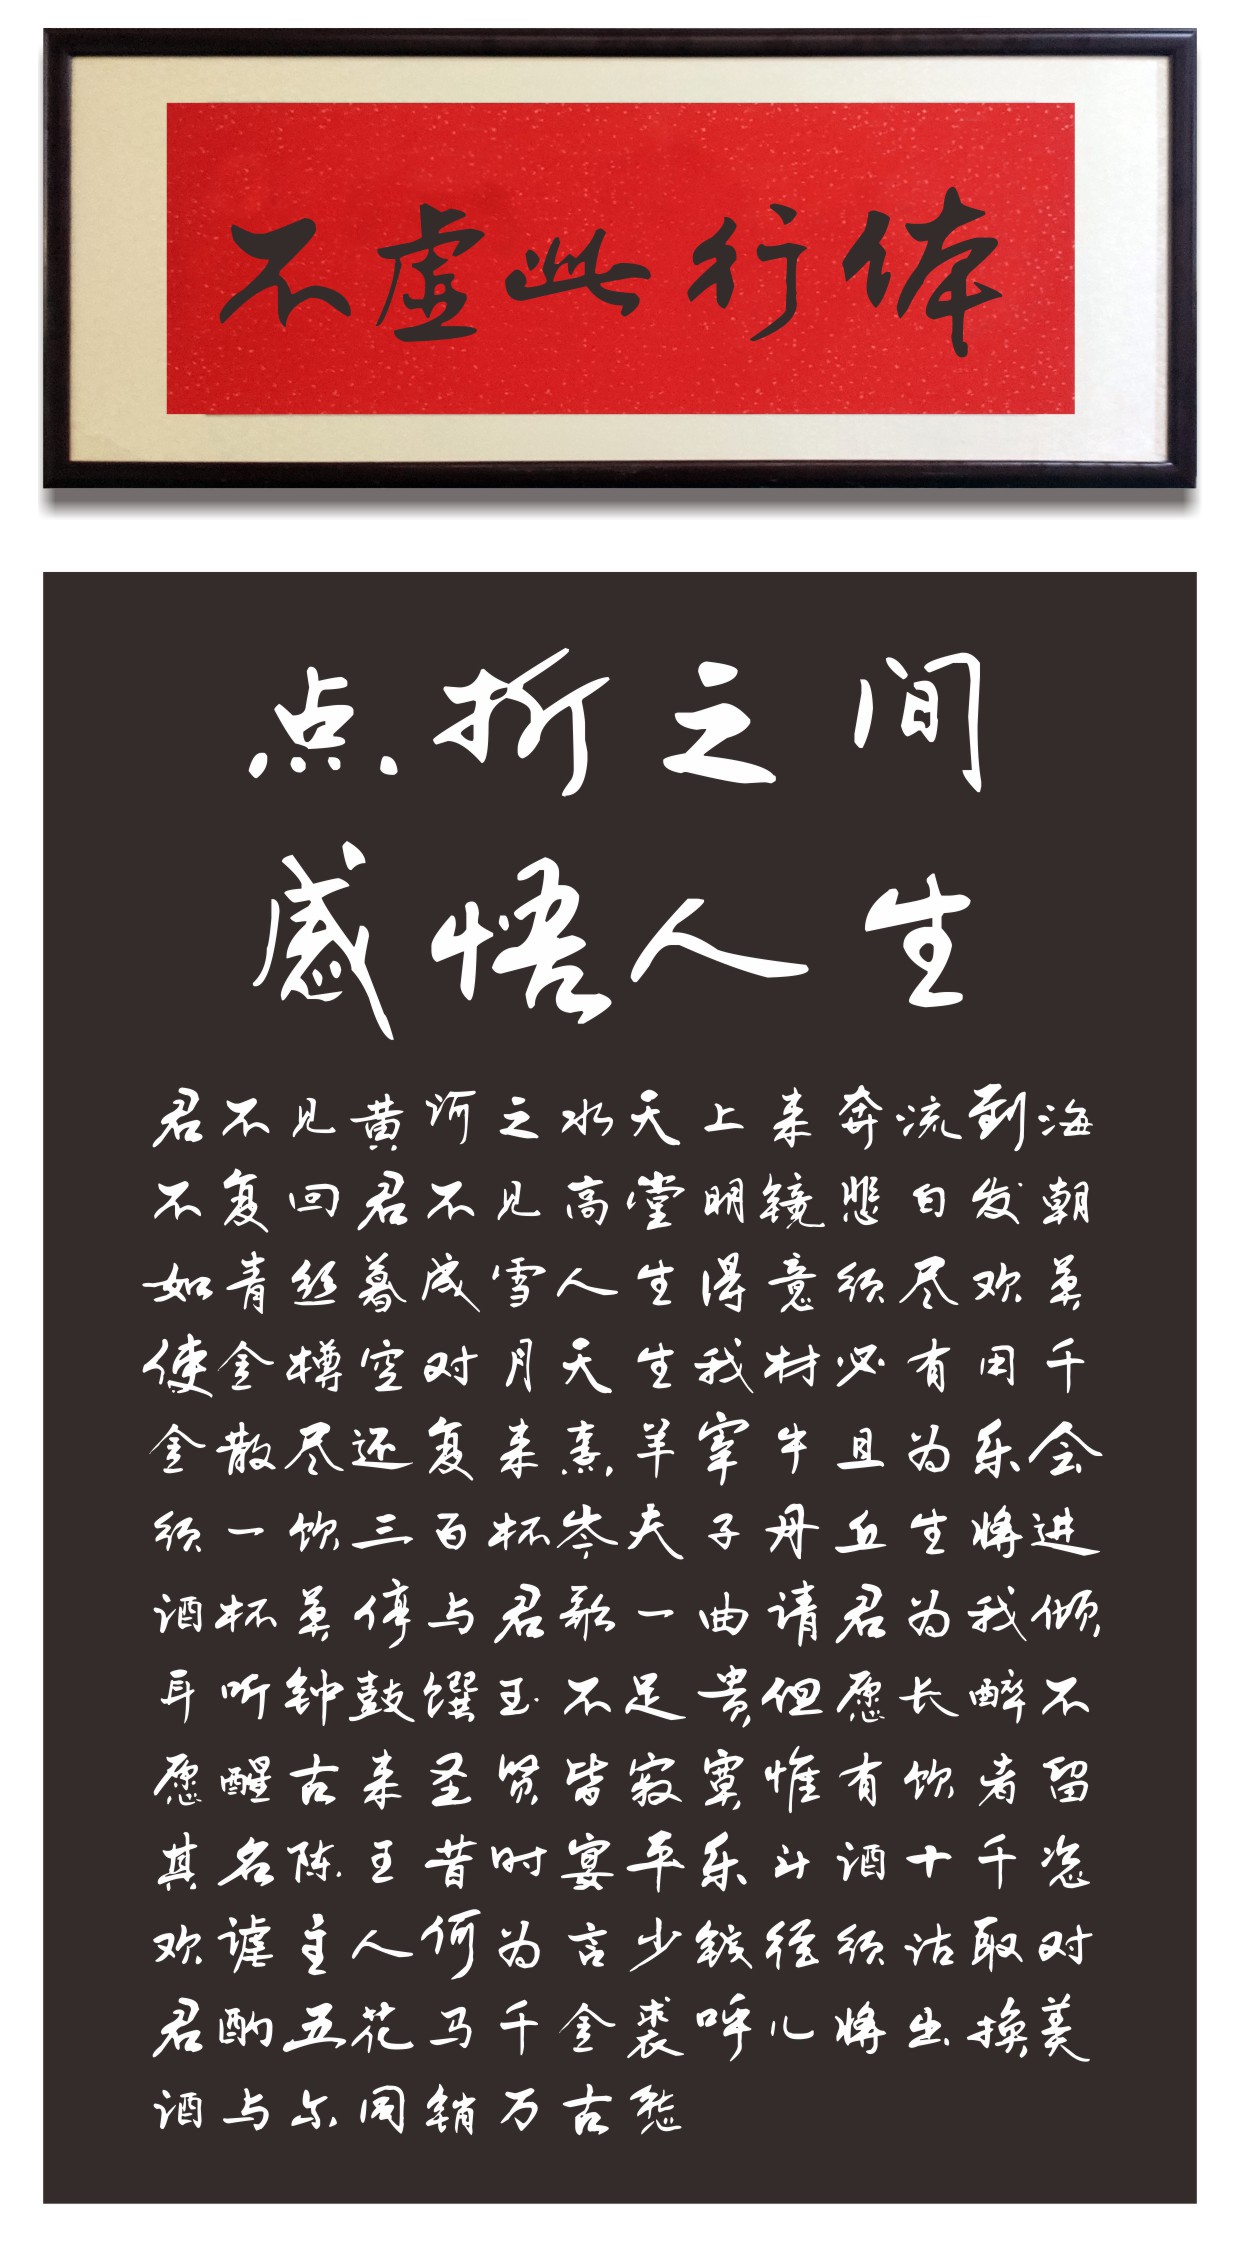 不虚此行体
点折之间
感悟人生
君不见黄河之水天上来奔流到海
不复回君不见高堂明镜悲白发朝
如青丝暮成雪人生得意须尽欢莫
使金樽空对月天生我材必有用千
金散尽还复来烹羊宰牛且为乐会
须一饮三百杯岑夫子丹丘生将进
酒杯莫停与君歌一曲请君为我倾
耳听钟鼓馔玉不足贵但愿长醉不
愿醒古来圣贤皆寂寞惟有饮者留
其名陈王昔时宴平乐斗酒十千恣
欢谑主人何为言少钱径须沽取对
君酌五花马千金裘呼儿将出换美
酒与尔同销万古愁